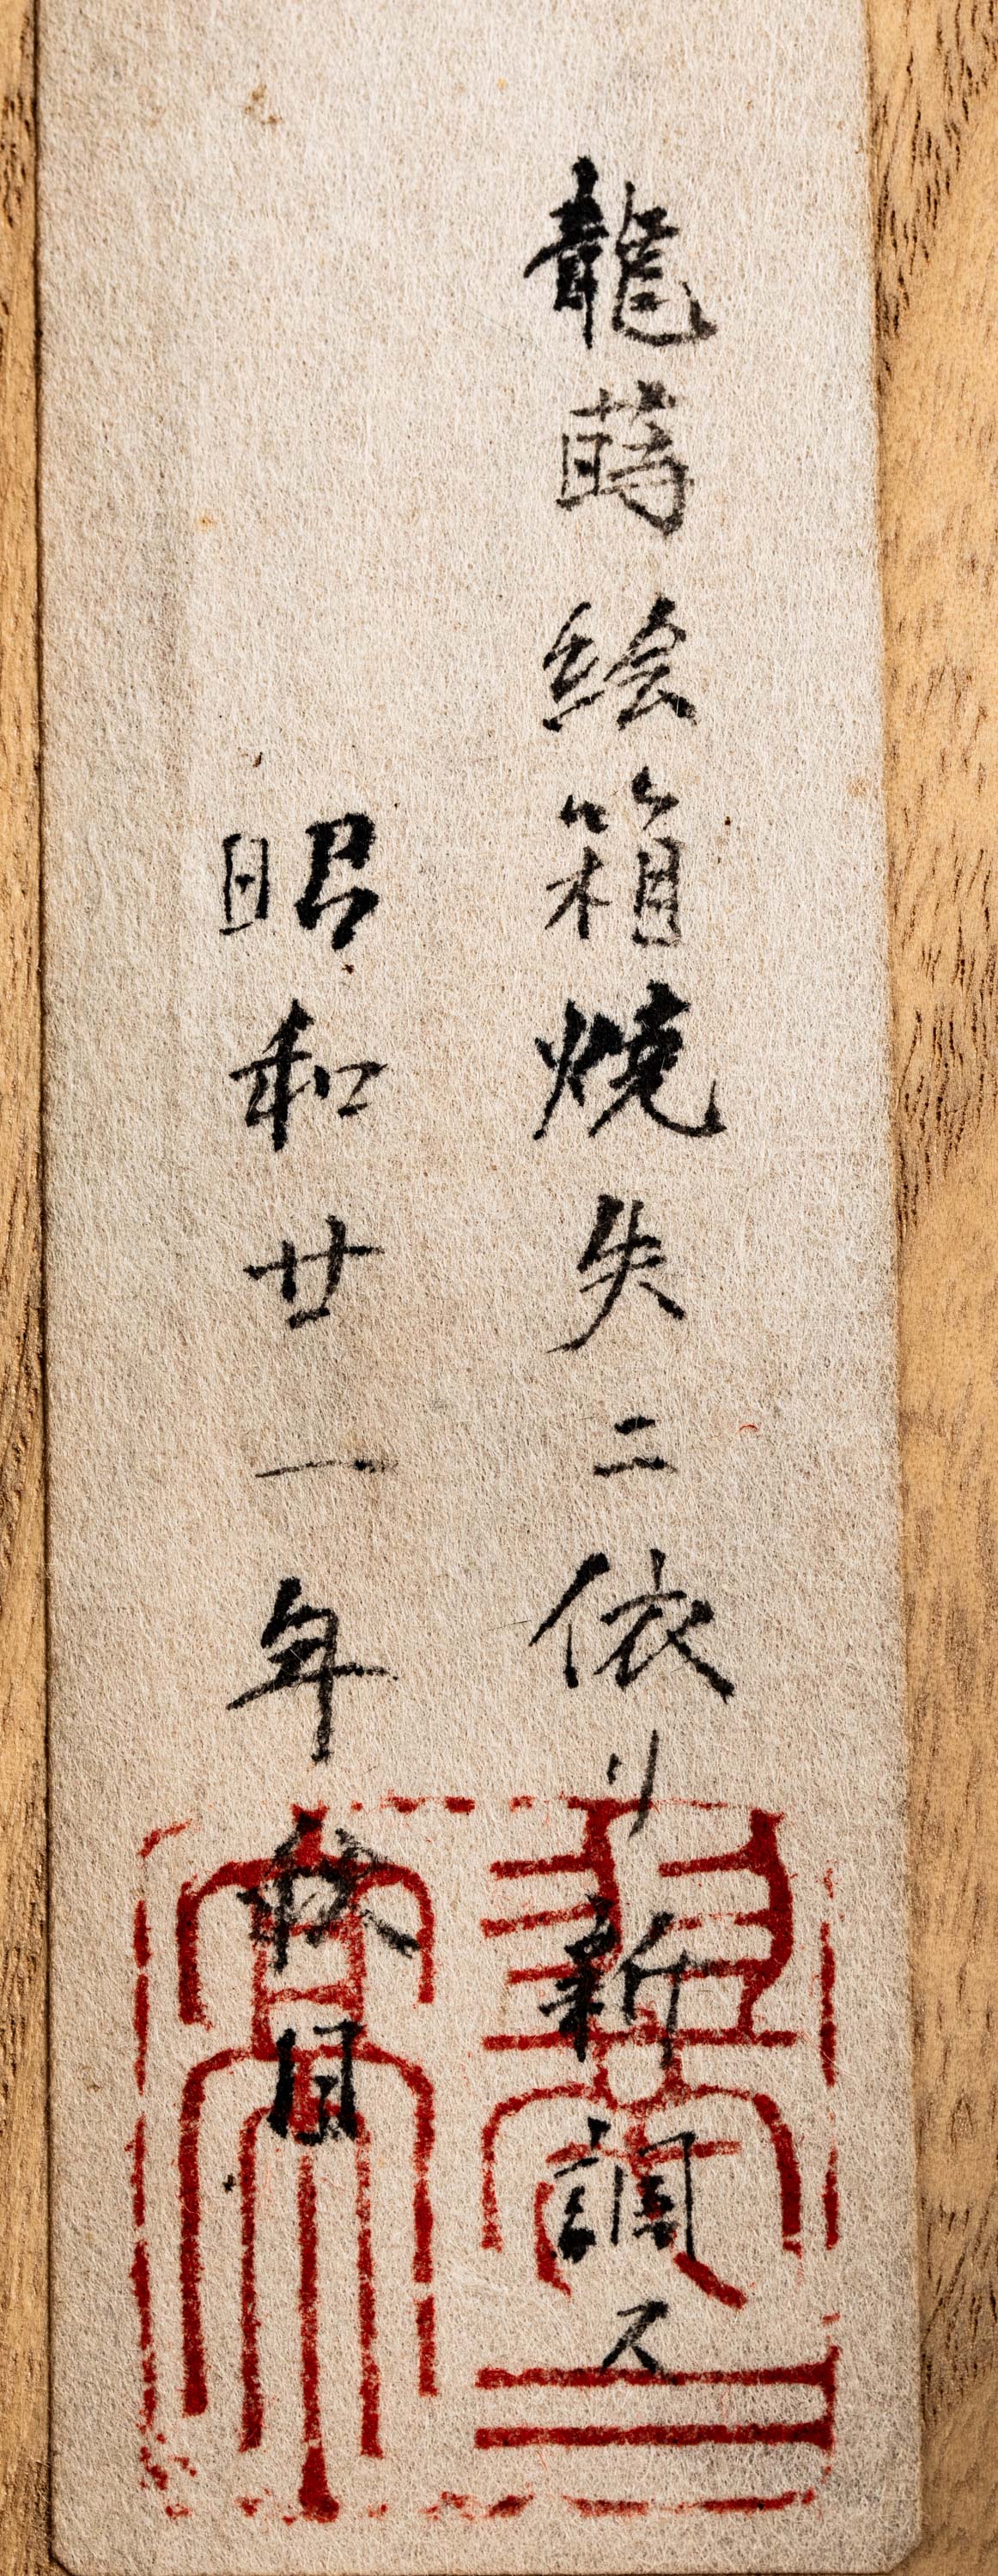 龍蒔絵箱焼失ニ依リ新調ス
昭和廿一年秋月